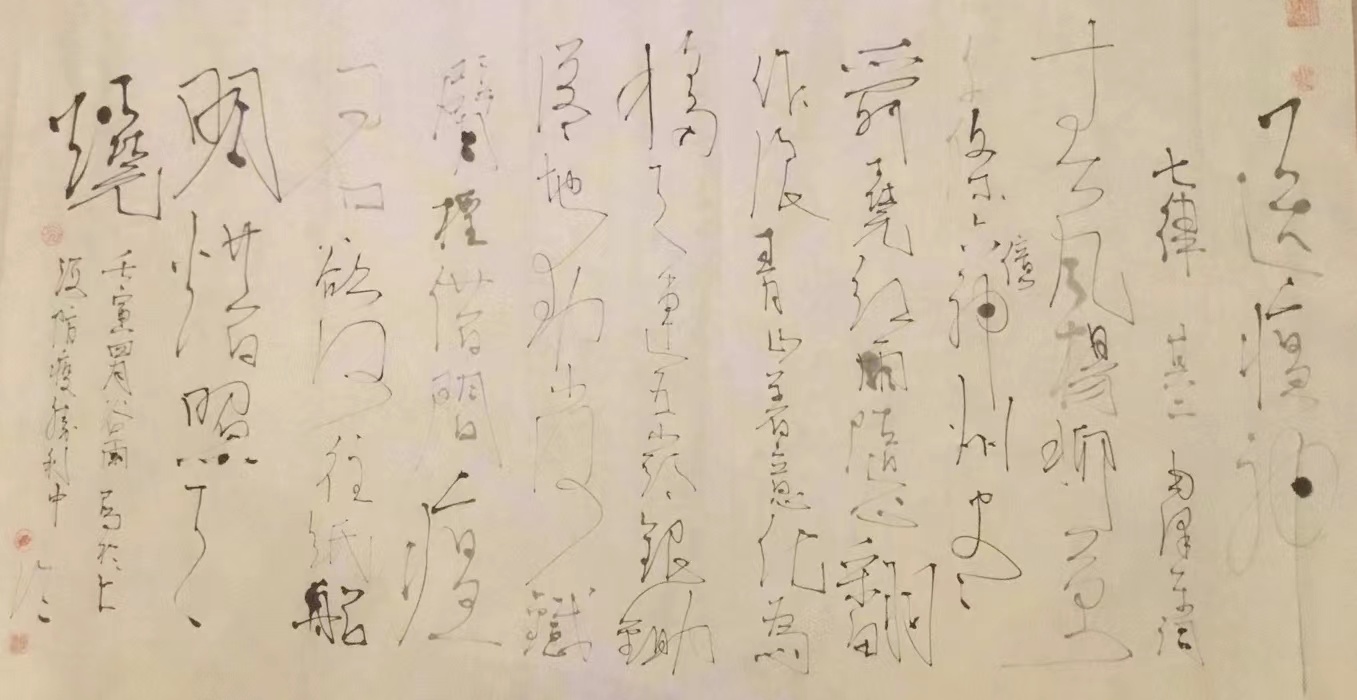 送瘟神
七律 其二 毛泽东词
春风楊柳萬
千條六億神州尽
舜堯红雨隨心翻
作浪青山着意化為
橋天連五岭銀鋤
落地動三河鐵
臂摇借問瘟
君欲何往紙船
明烛照天
燒
壬寅四月谷雨 寫於上
海防疫勝利中